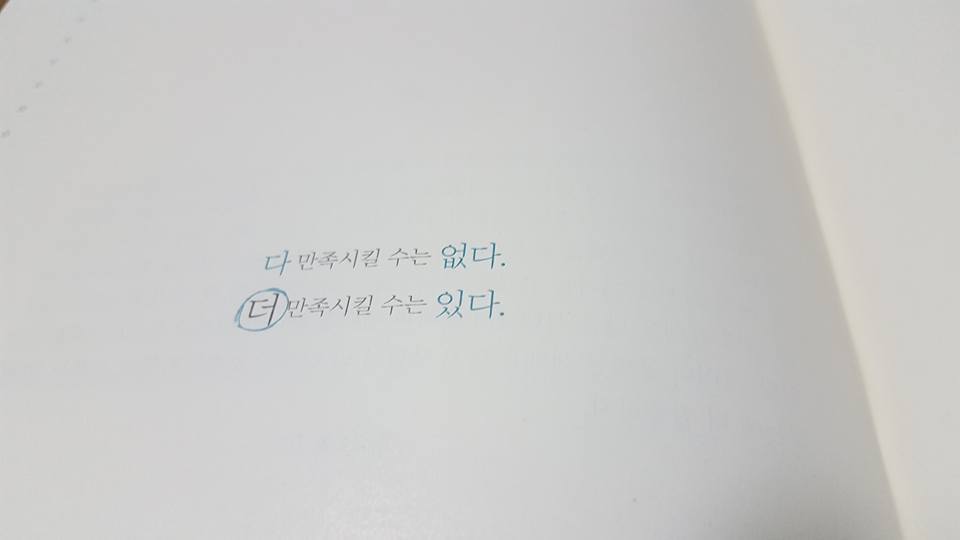 다 만족시킬 수는 없다.
더 만족시킬 수는 있다.